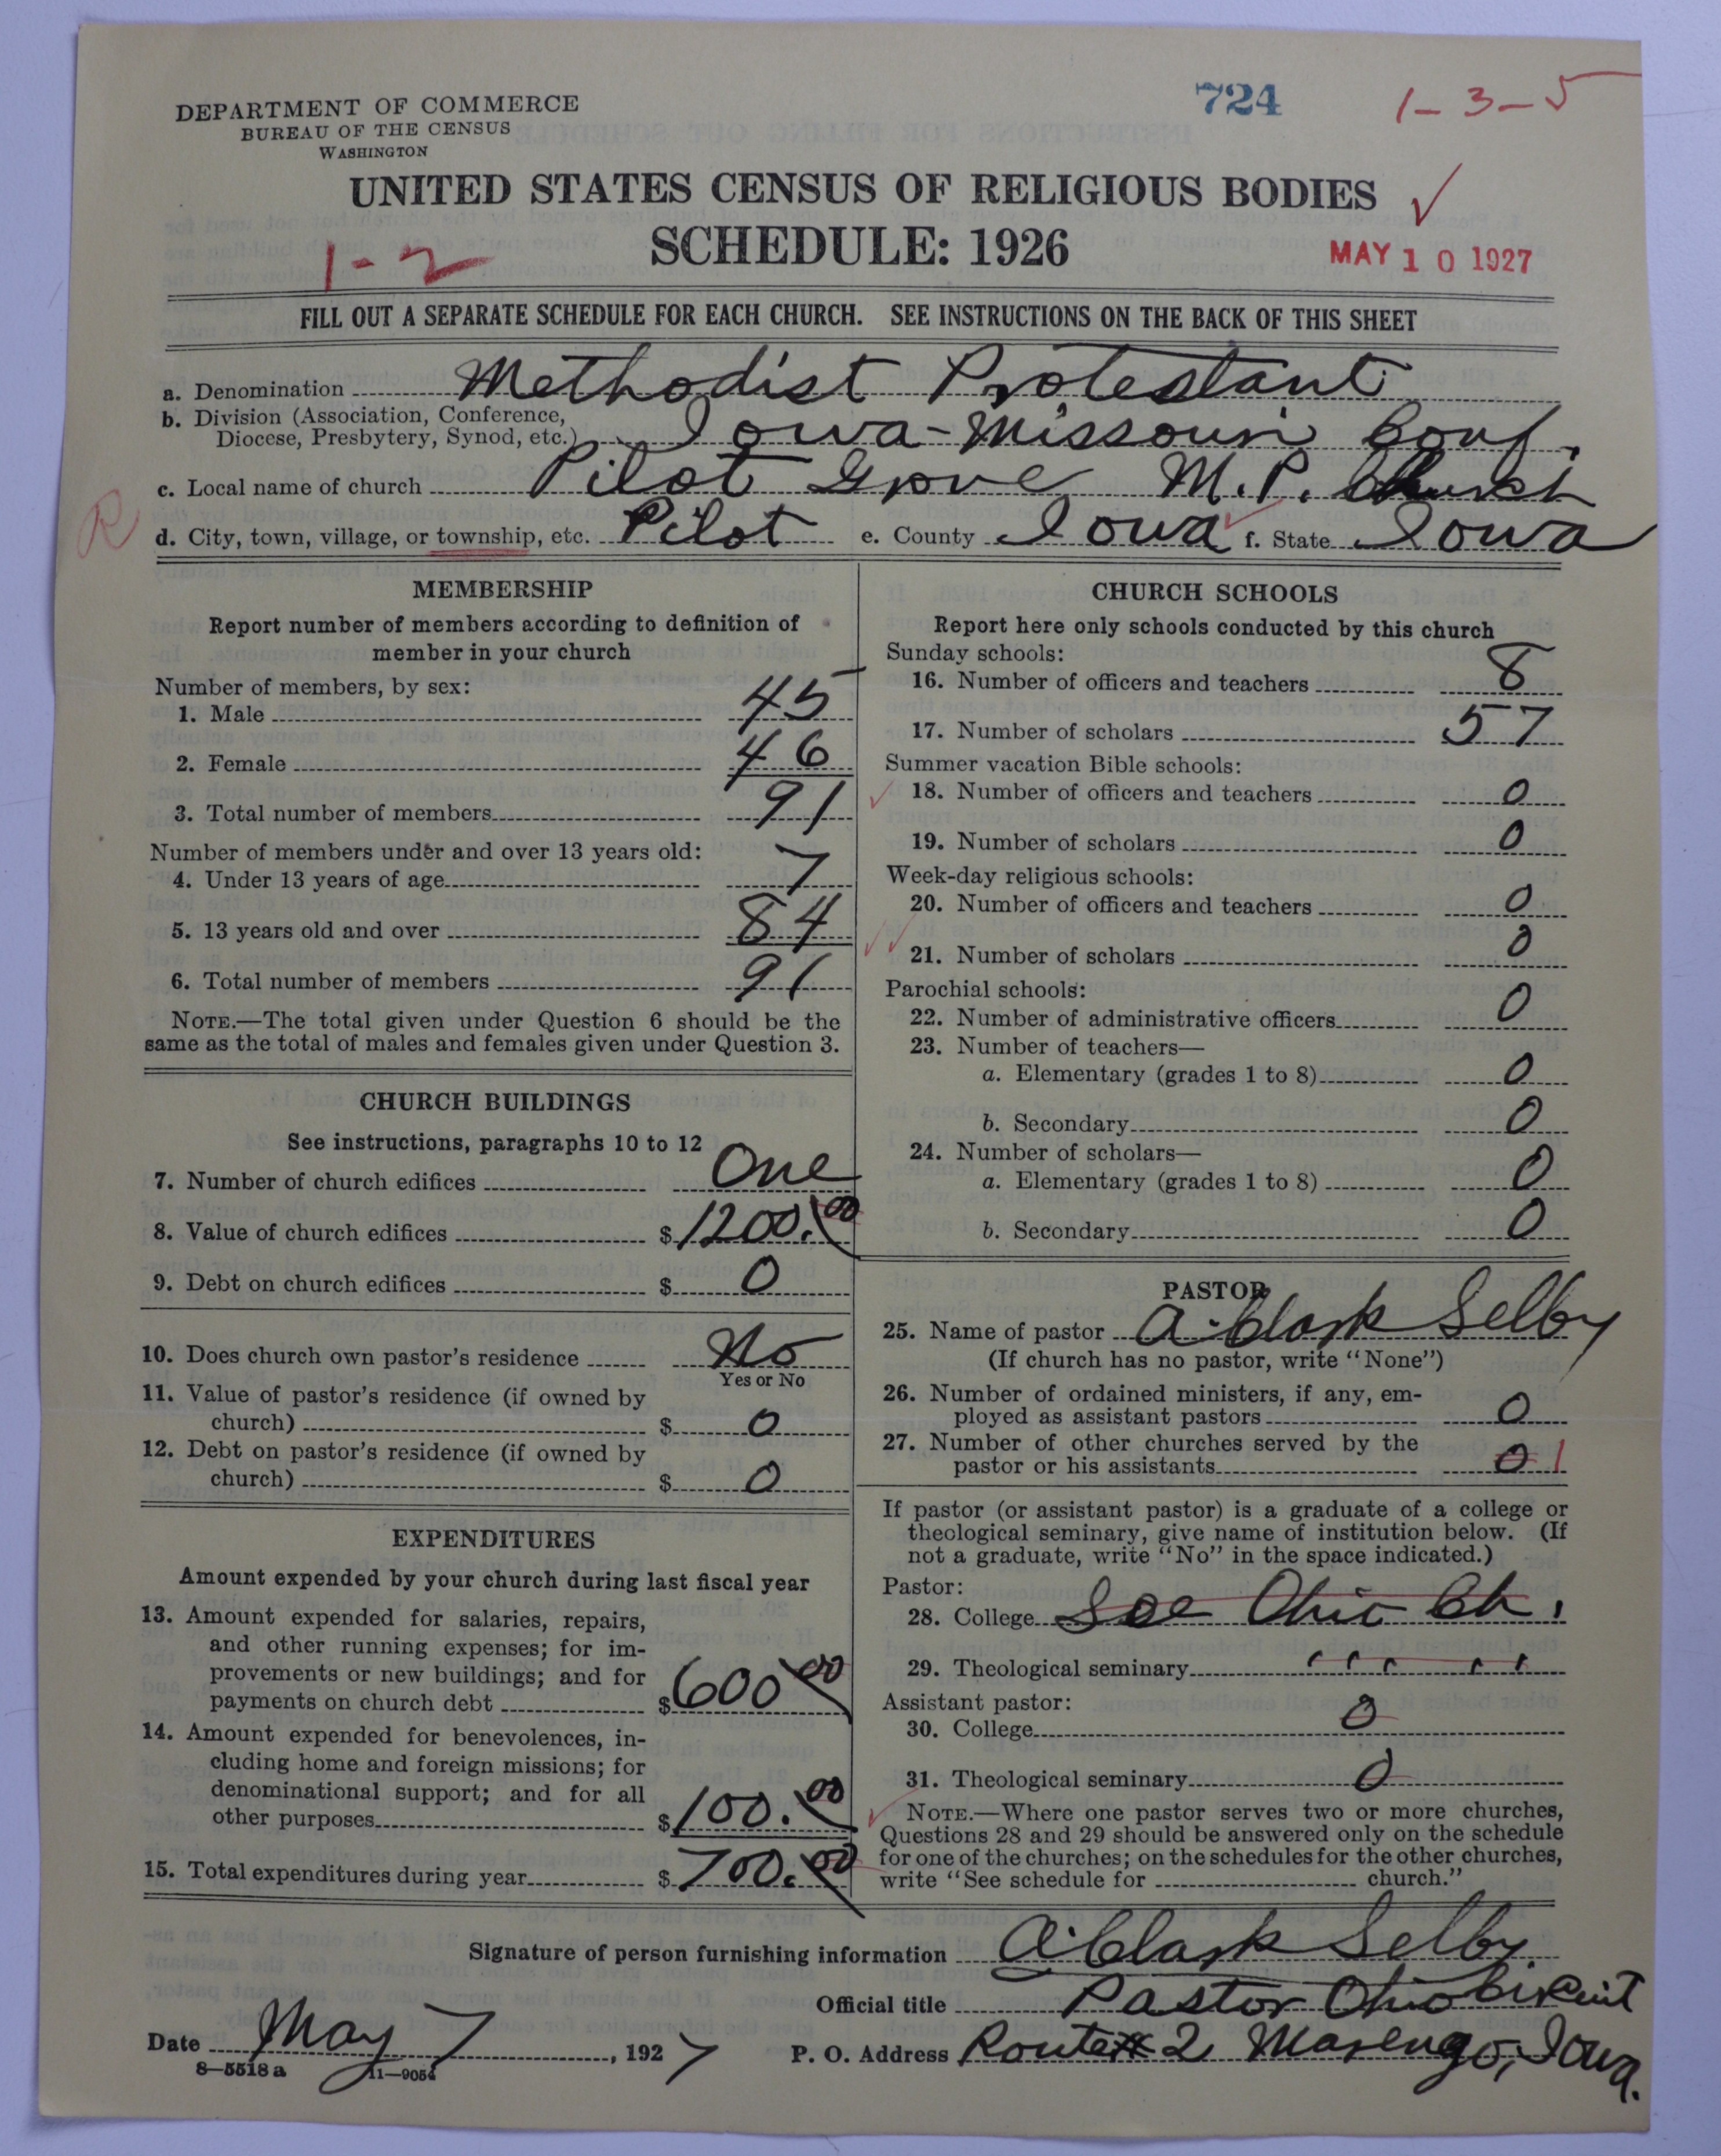 724
1-3-5
DEPARTMENT OF COMMERCE
BUREAU OF THE CENSUS
WASHINGTON
UNITED STATES CENSUS OF RELIGIOUS BODIES
SCHEDULE: 1926
1-2
MAY 10 1927
FILL OUT A SEPARATE SCHEDULE FOR EACH CHURCH. SEE INSTRUCTIONS ON THE BACK OF THIS SHEET
a. Denomination Methodist Protestant
b. Division (Association, Conference,
Diocese, Presbytery, Synod, etc.) Iowa-Missouri Conf.
c. Local name of church Pilot Grove M.P. Church
R
d. City, town, village, or township, etc. Pilot e. County Iowa f. State Iowa
MEMBERSHIP
Report number of members according to definition of
member in your church
Number of members, by sex:
1. Male 45
2. Female 46
3. Total number of members 91
Number of members under and over 13 years old:
4. Under 13 years of age 7
5. 13 years old and over 84
6. Total number of members 91
NOTE.—The total given under Question 6 should be the
same as the total of males and females given under Question 3.
CHURCH BUILDINGS
See instructions, paragraphs 10 to 12
7. Number of church edifices One
8. Value of church edifices $1200.00
9. Debt on church edifices $ 0
10. Does church own pastor's residence No
Yes or No
11. Value of pastor's residence (if owned by
church) $ 0
12. Debt on pastor's residence (if owned by
church) $ 0
EXPENDITURES
Amount expended by your church during last fiscal year
13. Amount expended for salaries, repairs,
and other running expenses; for im-
provements or new buildings; and for
payments on church debt $600.00
14. Amount expended for benevolences, in-
cluding home and foreign missions; for
denominational support; and for all
other purposes $100.00
15. Total expenditures during year $700.00
CHURCH SCHOOLS
Report here only schools conducted by this church
Sunday schools:
16. Number of officers and teachers 8
17. Number of scholars 57
Summer vacation Bible schools:
18. Number of officers and teachers 0
19. Number of scholars 0
Week-day religious schools:
20. Number of officers and teachers 0
21. Number of scholars 0
Parochial schools:
22. Number of administrative officers 0
23. Number of teachers—
a. Elementary (grades 1 to 8) 0
b. Secondary 0
24. Number of scholars—
a. Elementary (grades 1 to 8) 0
b. Secondary 0
PASTOR
25. Name of pastor A. Clark Selby
(If church has no pastor, write "None")
26. Number of ordained ministers, if any, em-
ployed as assistant pastors 0
27. Number of other churches served by the
pastor or his assistants 0 1
If pastor (or assistant pastor) is a graduate of a college or
theological seminary, give name of institution below. (If
not a graduate, write "No" in the space indicated.)
Pastor:
28. College See Ohio Ch.
29. Theological seminary " " " " "
Assistant pastor:
30. College 0
31. Theological seminary 0
NOTE.—Where one pastor serves two or more churches,
Questions 28 and 29 should be answered only on the schedule
for one of the churches; on the schedules for the other churches,
write "See schedule for church."
Signature of person furnishing information A. Clark Selby
Official title Pastor Ohio Circuit
Date May 7, 1927 P. O. Address Route # 2 Marengo, Iowa.
8—5518 a 11—9054